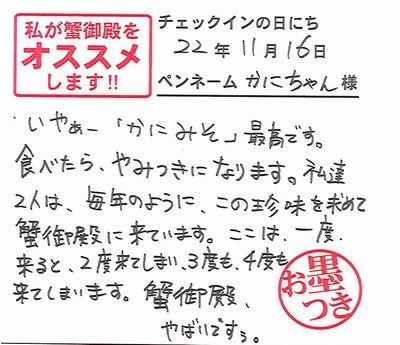 私が蟹御殿を
オススメ
します!!
チェックインの日にち
22年11月16日
ペンネーム かにちゃん 様
いやぁー「かにみそ」最高です。
食べたら、やみつきになります。私達
2人は、毎年のように、この珍味を求めて
蟹御殿に来ています。ここは、一度、
来ると、2度来てしまい、3度も、4度も
来てしまいます。蟹御殿、
やばいですぅ。
お墨つき